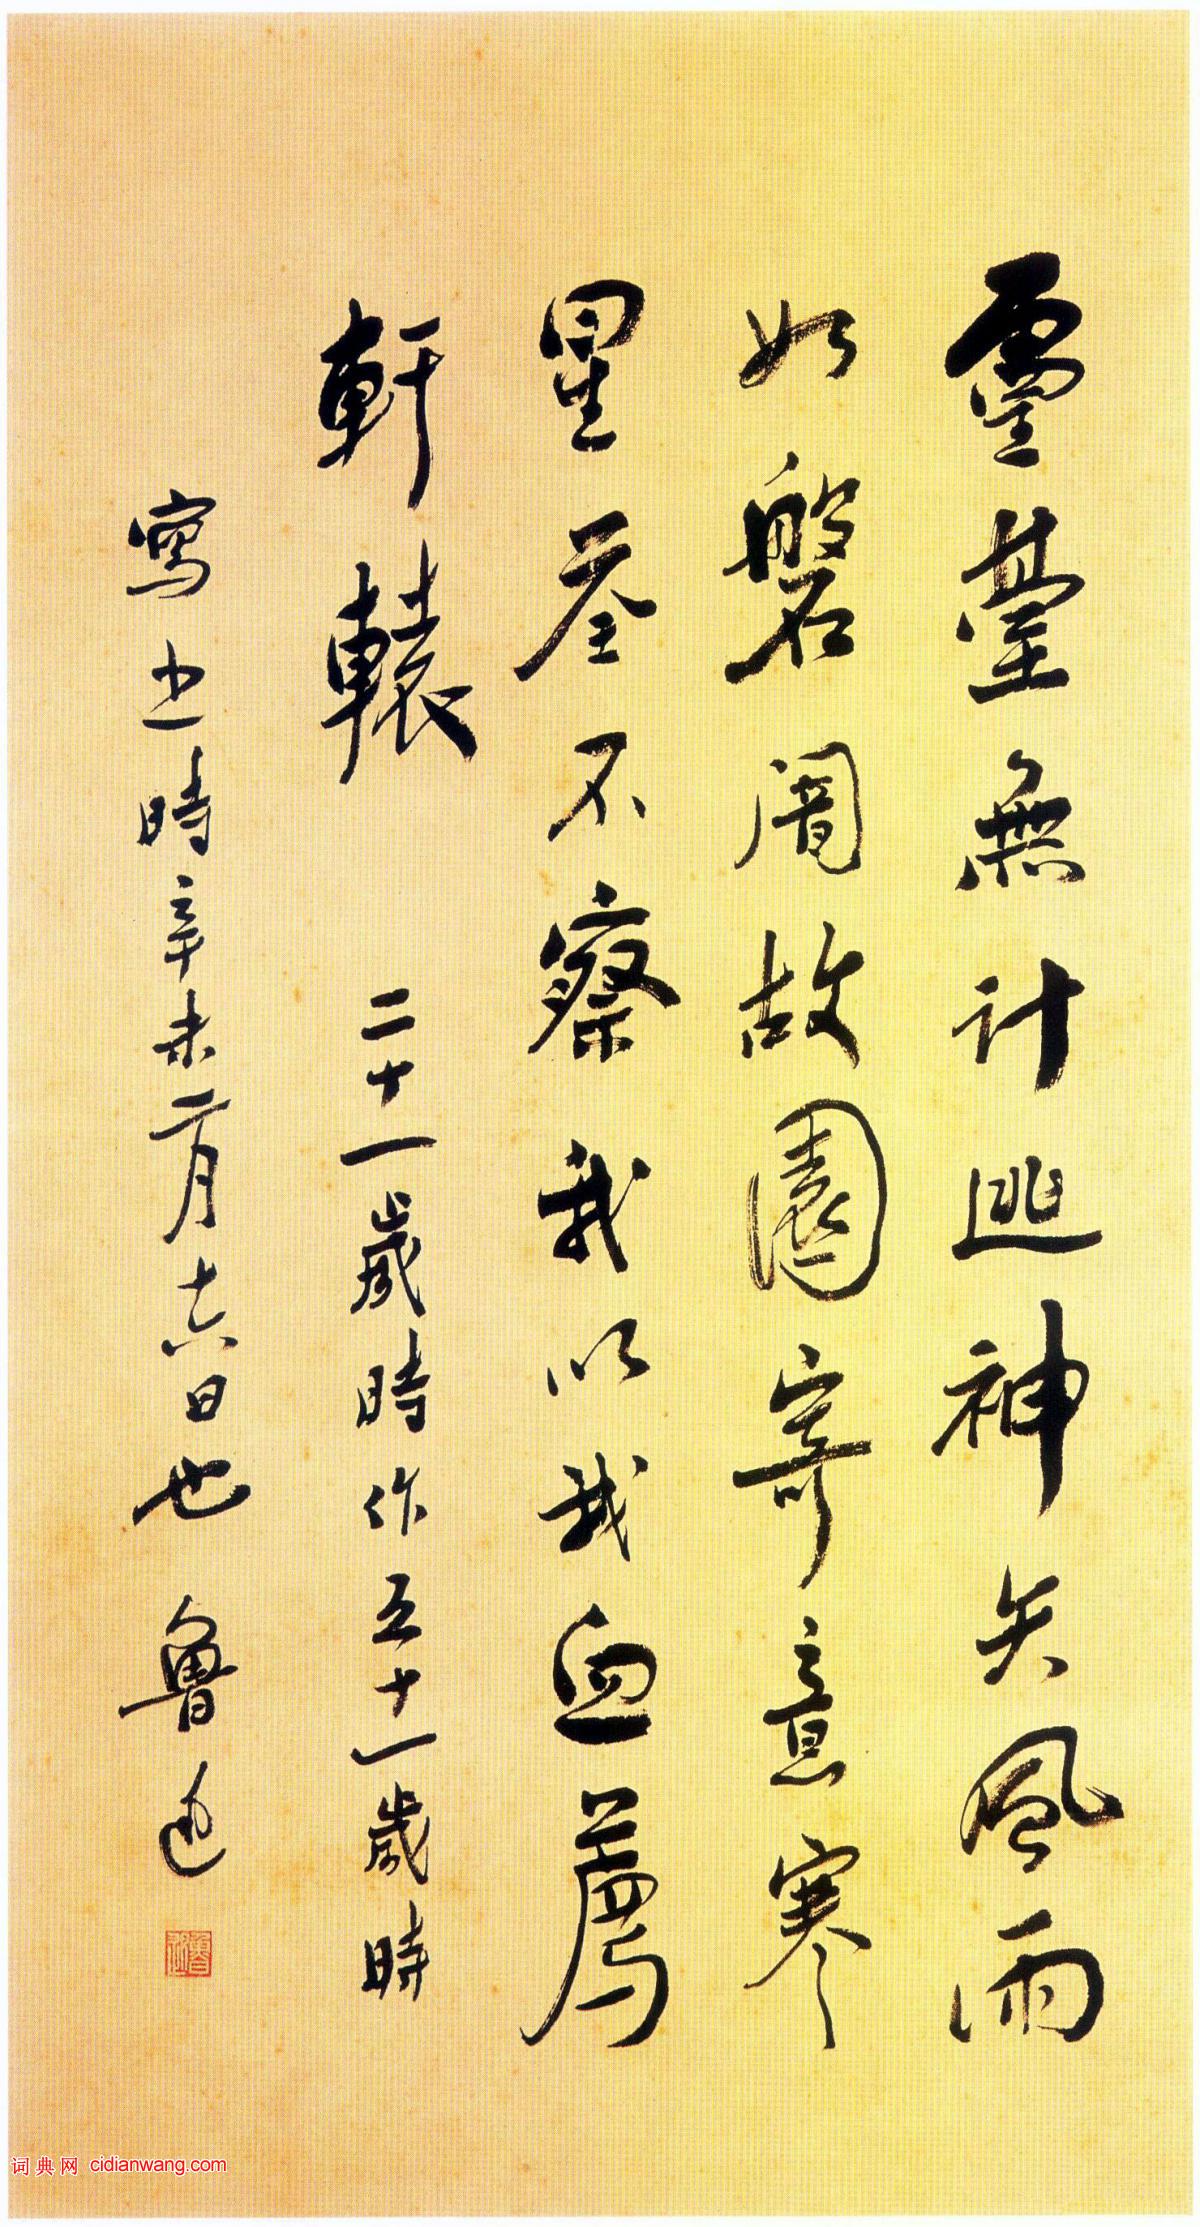 靈臺無計逃神矢風雨
如磐闇故園寄意寒
星荃不察我以我血薦
軒轅 二十一歲時作五十一歲時
寫之時辛未二月十六日也 魯迅
魯迅
词典网 cidianwang.com